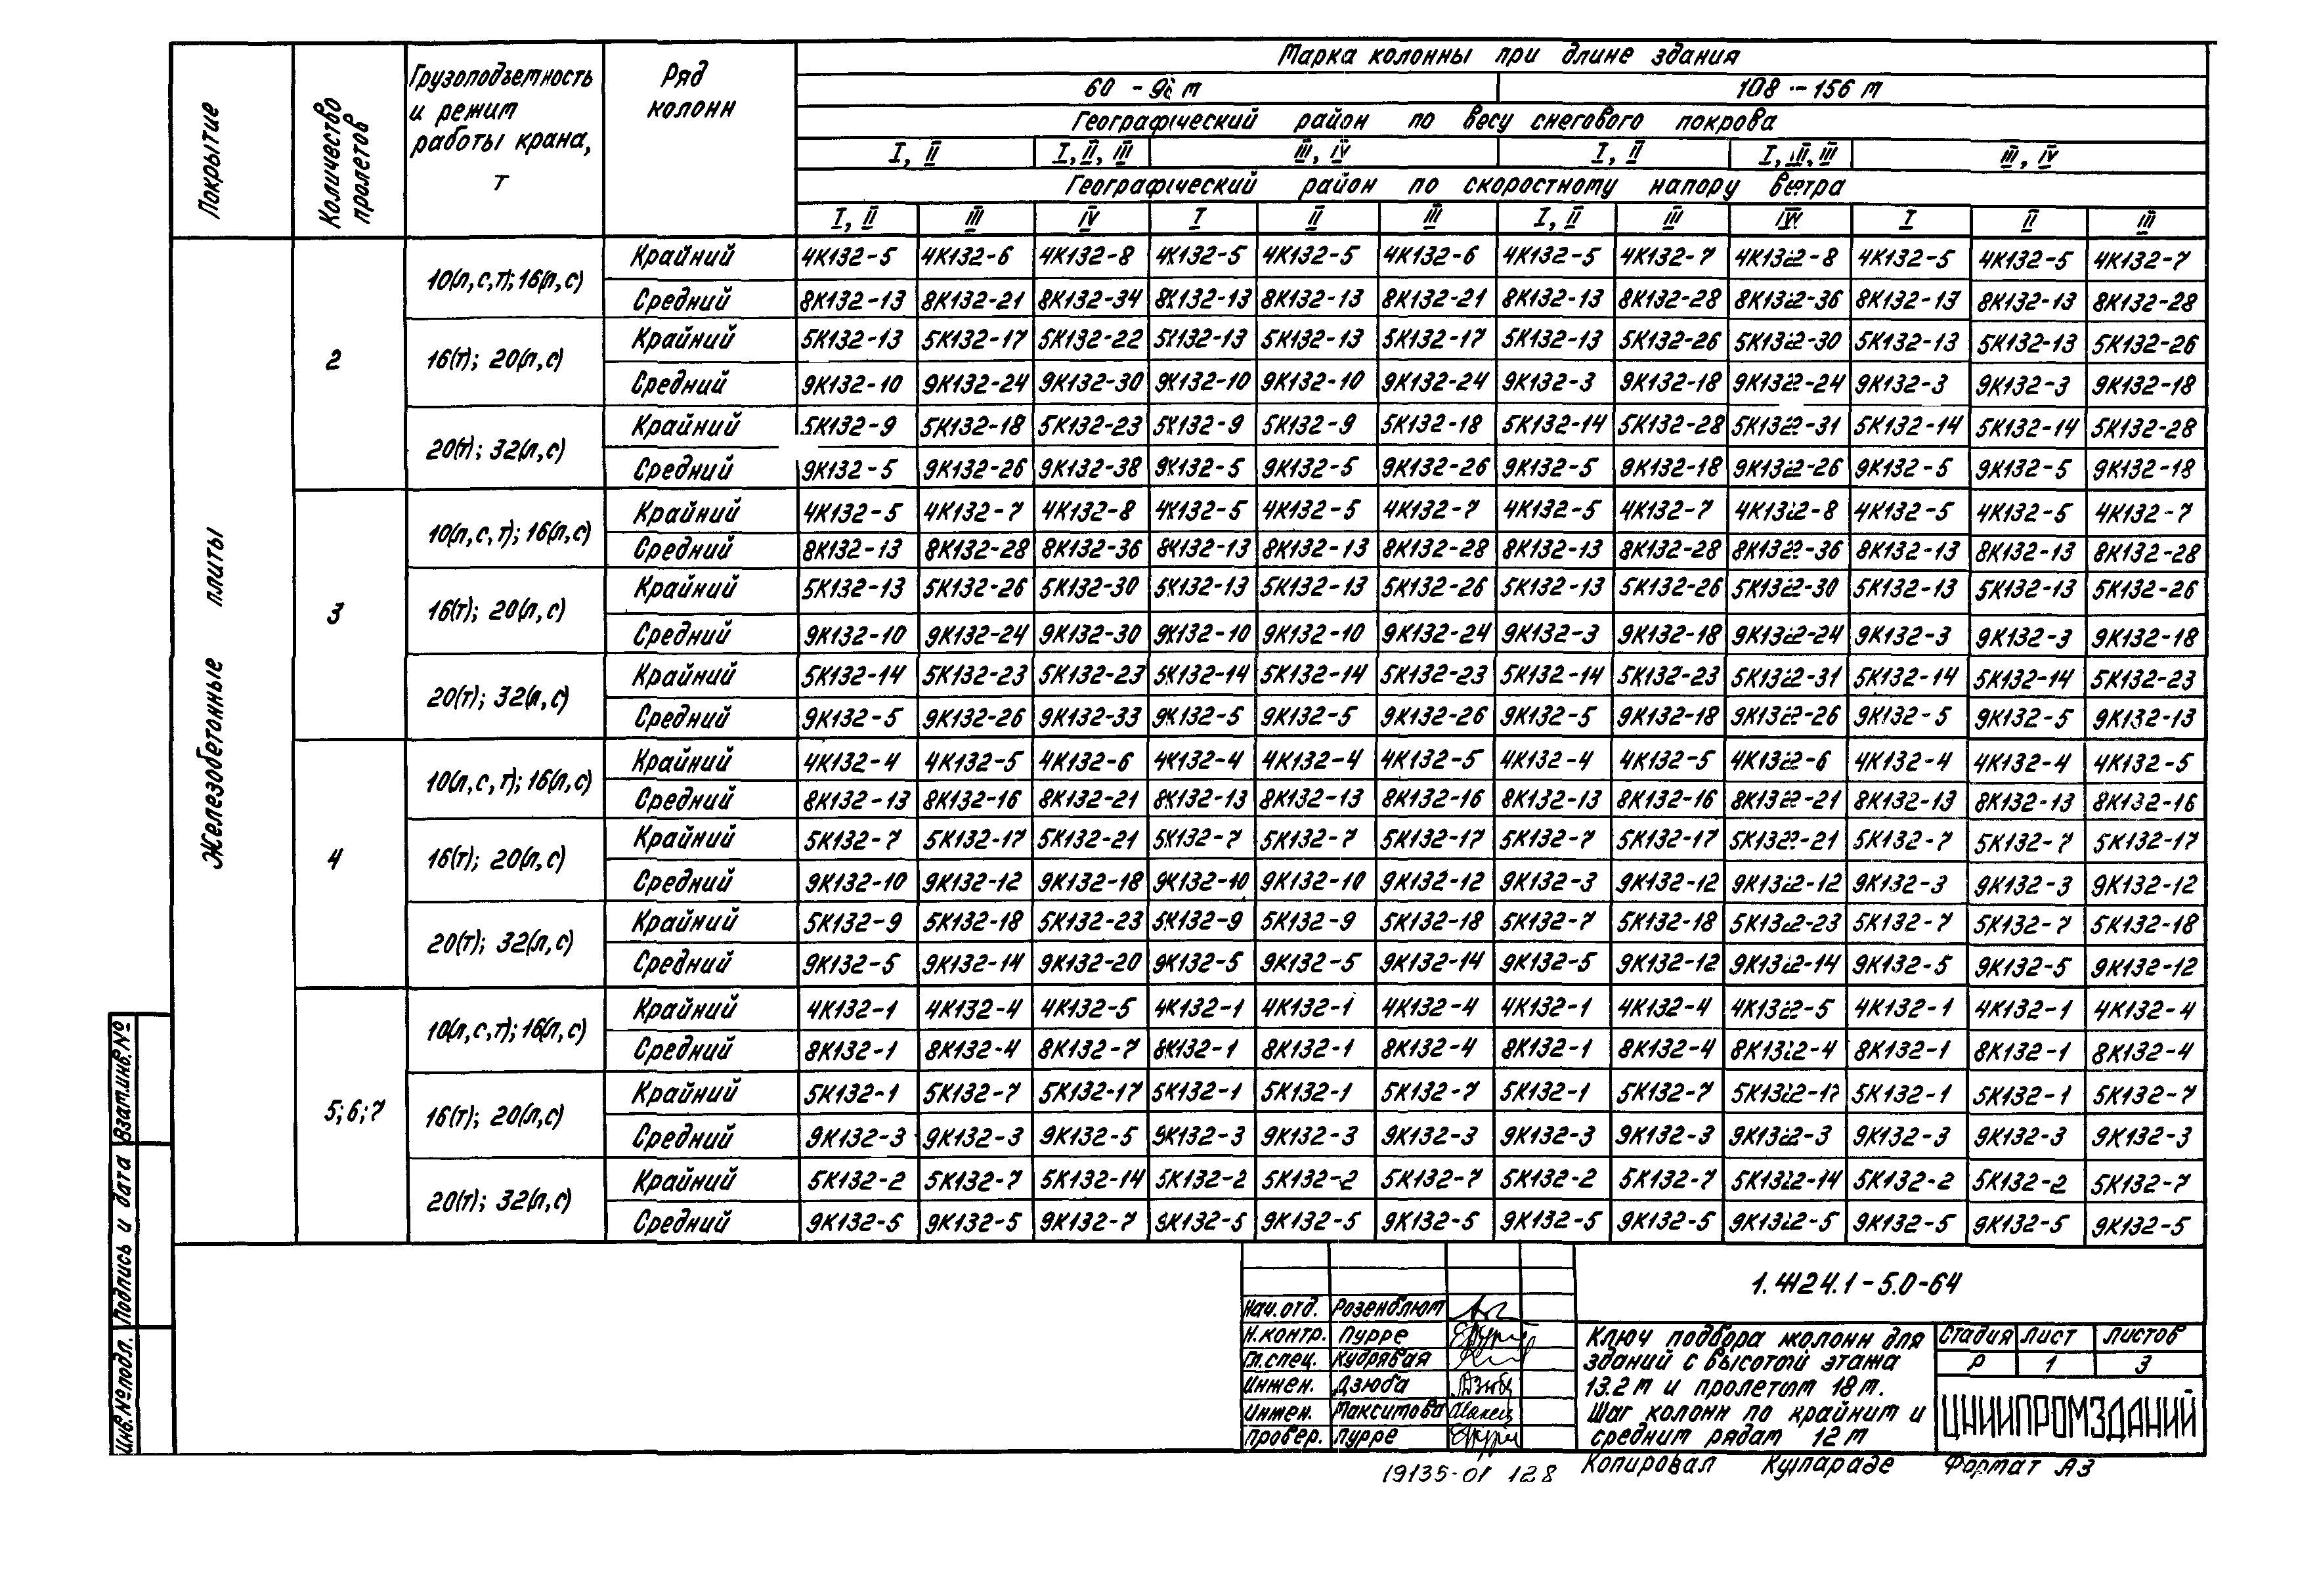 Марка колонны при длине здания
Покрытие
Количество пролетов
Грузоподъемность и режим работы крана, т
Ряд колонн
60 - 96 м 108 - 156 м
Географический район по весу снегового покрова
I, II I, II, III III, IV I, II I, II, III III, IV
Географический район по скоростному напору ветра
I, II III IV I II III I, II III IV I II III
Железобетонные плиты
2
10(л,с,т); 16(л,с)
Крайний 4К132-5 4К132-6 4К132-8 4К132-5 4К132-5 4К132-6 4К132-5 4К132-7 4К132-8 4К132-5 4К132-5 4К132-7
Средний 8К132-13 8К132-21 8К132-34 8К132-13 8К132-13 8К132-21 8К132-13 8К132-28 8К132-36 8К132-13 8К132-13 8К132-28
16(т); 20(л,с)
Крайний 5К132-13 5К132-17 5К132-22 5К132-13 5К132-13 5К132-17 5К132-13 5К132-26 5К132-30 5К132-13 5К132-13 5К132-26
Средний 9К132-10 9К132-24 9К132-30 9К132-10 9К132-10 9К132-24 9К132-3 9К132-18 9К132-24 9К132-3 9К132-3 9К132-18
20(т); 32(л,с)
Крайний 5К132-9 5К132-18 5К132-23 5К132-9 5К132-9 5К132-18 5К132-14 5К132-28 5К132-31 5К132-14 5К132-14 5К132-28
Средний 9К132-5 9К132-26 9К132-38 9К132-5 9К132-5 9К132-26 9К132-5 9К132-18 9К132-26 9К132-5 9К132-5 9К132-18
3
10(л,с,т); 16(л,с)
Крайний 4К132-5 4К132-7 4К132-8 4К132-5 4К132-5 4К132-7 4К132-5 4К132-7 4К132-8 4К132-5 4К132-5 4К132-7
Средний 8К132-13 8К132-28 8К132-36 8К132-13 8К132-13 8К132-28 8К132-13 8К132-28 8К132-36 8К132-13 8К132-13 8К132-28
16(т); 20(л,с)
Крайний 5К132-13 5К132-26 5К132-30 5К132-13 5К132-13 5К132-26 5К132-13 5К132-26 5К132-30 5К132-13 5К132-13 5К132-26
Средний 9К132-10 9К132-24 9К132-30 9К132-10 9К132-10 9К132-24 9К132-3 9К132-18 9К132-24 9К132-3 9К132-3 9К132-18
20(т); 32(л,с)
Крайний 5К132-14 5К132-23 5К132-23 5К132-14 5К132-14 5К132-23 5К132-14 5К132-23 5К132-31 5К132-14 5К132-14 5К132-23
Средний 9К132-5 9К132-26 9К132-33 9К132-5 9К132-5 9К132-26 9К132-5 9К132-18 9К132-26 9К132-5 9К132-5 9К132-13
4
10(л,с,т); 16(л,с)
Крайний 4К132-4 4К132-5 4К132-6 4К132-4 4К132-4 4К132-5 4К132-4 4К132-5 4К132-6 4К132-4 4К132-4 4К132-5
Средний 8К132-13 8К132-16 8К132-21 8К132-13 8К132-13 8К132-16 8К132-13 8К132-16 8К132-21 8К132-13 8К132-13 8К132-16
16(т); 20(л,с)
Крайний 5К132-7 5К132-17 5К132-21 5К132-7 5К132-7 5К132-17 5К132-7 5К132-17 5К132-21 5К132-7 5К132-7 5К132-17
Средний 9К132-10 9К132-12 9К132-18 9К132-10 9К132-10 9К132-12 9К132-3 9К132-12 9К132-12 9К132-3 9К132-3 9К132-12
20(т); 32(л,с)
Крайний 5К132-9 5К132-18 5К132-23 5К132-9 5К132-9 5К132-18 5К132-7 5К132-18 5К132-23 5К132-7 5К132-7 5К132-18
Средний 9К132-5 9К132-14 9К132-20 9К132-5 9К132-5 9К132-14 9К132-5 9К132-12 9К132-14 9К132-5 9К132-5 9К132-12
5;6;7
10(л,с,т); 16(л,с)
Крайний 4К132-1 4К132-4 4К132-5 4К132-1 4К132-1 4К132-4 4К132-1 4К132-4 4К132-5 4К132-1 4К132-1 4К132-4
Средний 8К132-1 8К132-4 8К132-7 8К132-1 8К132-1 8К132-4 8К132-1 8К132-4 8К132-4 8К132-1 8К132-1 8К132-4
16(т); 20(л,с)
Крайний 5К132-1 5К132-7 5К132-17 5К132-1 5К132-1 5К132-7 5К132-1 5К132-7 5К132-17 5К132-1 5К132-1 5К132-7
Средний 9К132-3 9К132-3 9К132-5 9К132-3 9К132-3 9К132-3 9К132-3 9К132-3 9К132-3 9К132-3 9К132-3 9К132-3
20(т); 32(л,с)
Крайний 5К132-2 5К132-7 5К132-14 5К132-2 5К132-2 5К132-7 5К132-2 5К132-7 5К132-14 5К132-2 5К132-2 5К132-7
Средний 9К132-5 9К132-5 9К132-7 9К132-5 9К132-5 9К132-5 9К132-5 9К132-5 9К132-5 9К132-5 9К132-5 9К132-5
Взам.инв.№
Подпись и дата
Инв.№ подл.
1.424.1-5.0-64
Нач.отд. Розенблюм
Н.контр. Пурре
Гл.спец. Кудрявая
Инжен. Дзюба
Инжен. Максимова
Провер. Пурре
Ключ подбора колонн для
зданий с высотой этажа
13.2 м и пролетом 18 м.
Шаг колонн по крайним и
средним рядам 12 м
Стадия Лист Листов
Р 1 3
ЦНИИПРОМЗДАНИЙ
19135-01 128 Копировал Формат А3